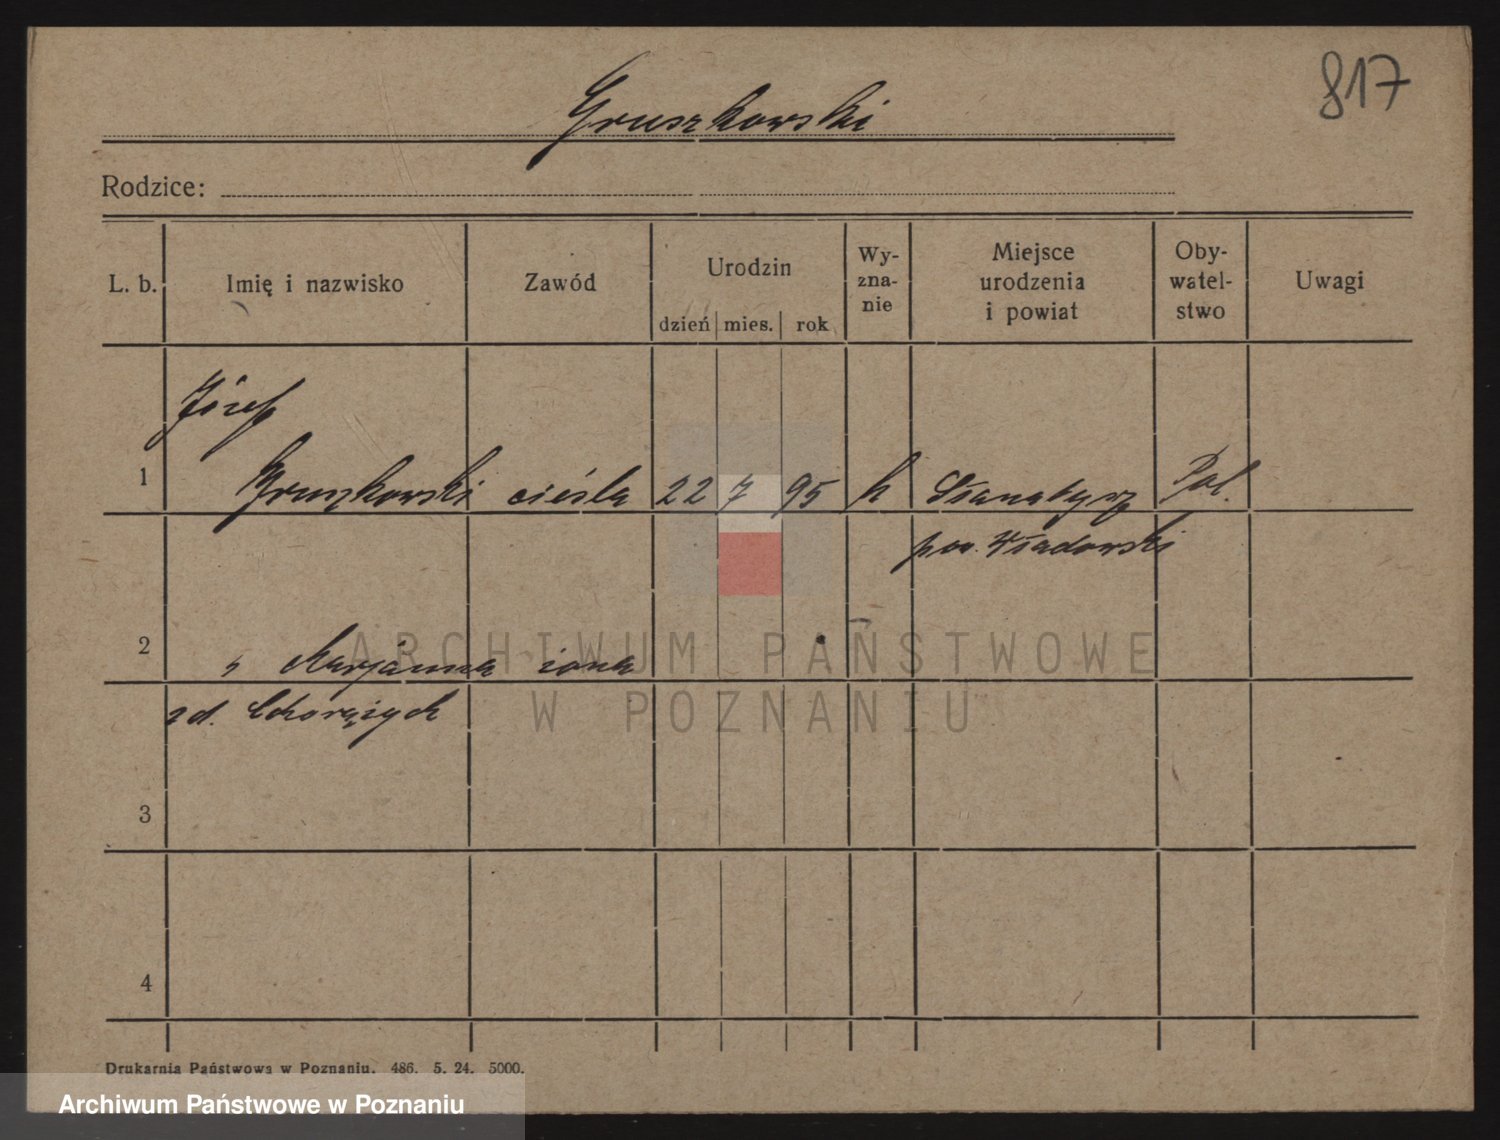 817
Gruszkowski
Rodzice:
L. b. Imię i nazwisko Zawód Urodzin Wy-zna-nie Miejsce urodzenia i powiat Oby-watel-stwo Uwagi
dzień mies. rok
Józef
1 Gruszkowski cieśla 22 7 95 k Pol.
pow.
2 " Marjanna żona
zd.
3
4
ARCHIWUM PAŃSTWOWE
W POZNANIU
Drukarnia Państwowa w Poznaniu. 486. 5. 24. 5000.
Archiwum Państwowe w Poznaniu